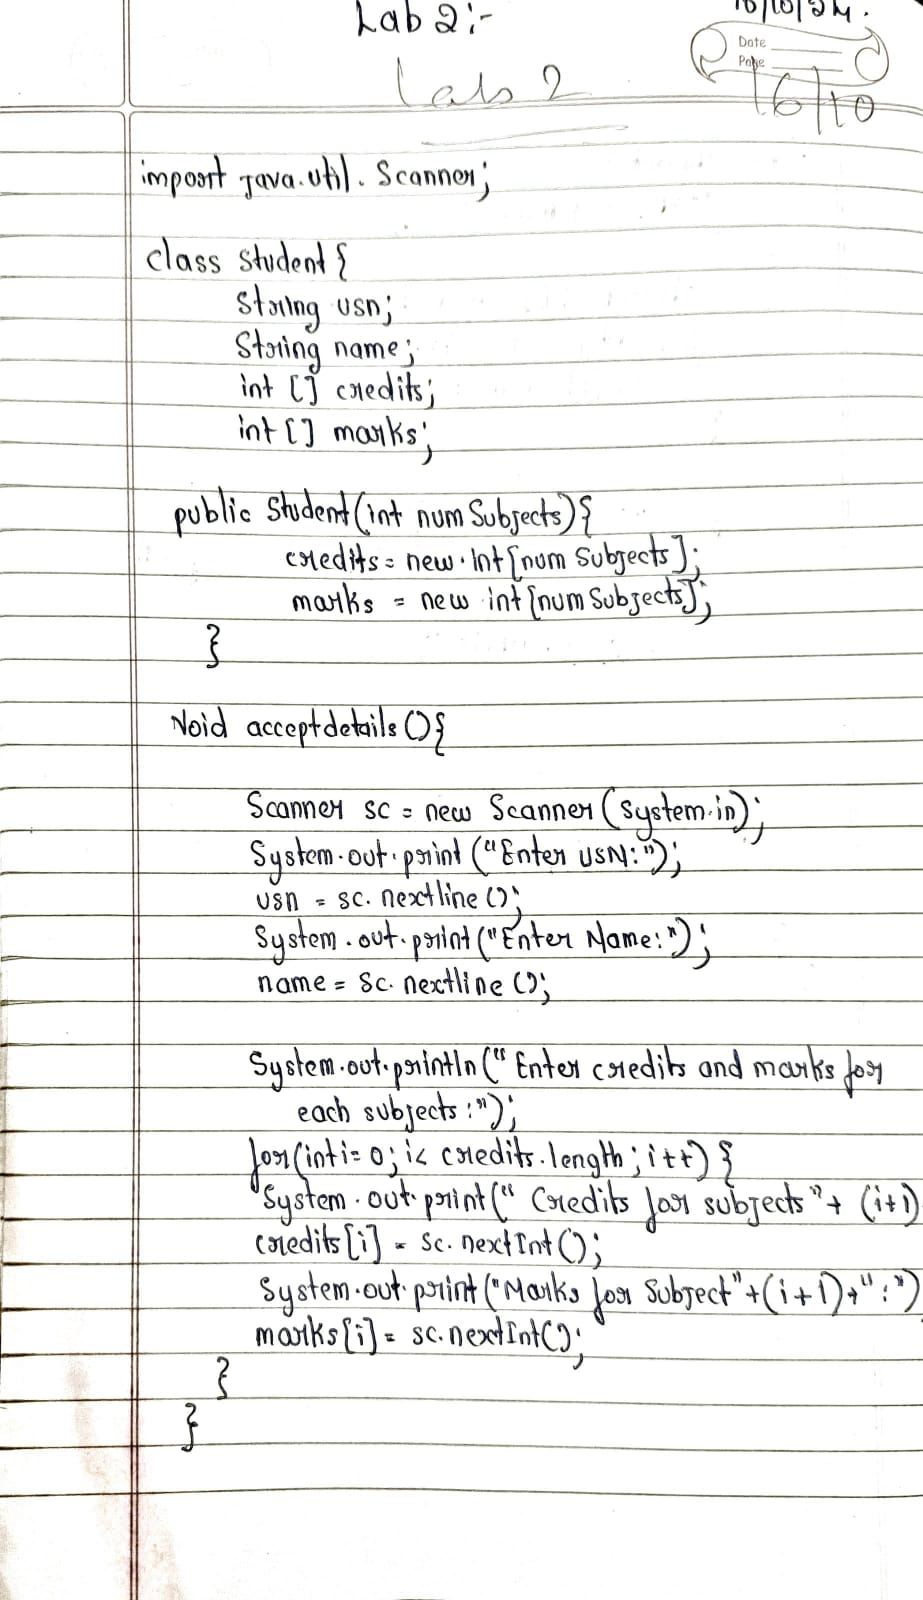 Lab 2:-
16/10/24.
Date
Page
Lab 2
16/10
import java.util.Scanner;
class Student {
String usn;
String name;
int [] credits;
int [] marks;
public Student(int numSubjects){
credits = new int[num Subjects];
marks = new int [num Subjects];
}
Void acceptdetails () {
Scanner sc = new Scanner (System.in);
System.out.print ("Enter USN:");
usn = sc. nextline ();
System.out.print ("Enter Name:");
name = sc. nextline ();
System.out.println (" Enter credits and marks for
each subjects :");
for(int i= 0; i< credits.length; i++) {
System.out.print (" Credits for subjects"+ (i+1)
credits [i] = sc. nextInt ();
System.out.print ("Marks for Subject"+(i+1)+":")
marks [i] = sc.nextInt();
}
}